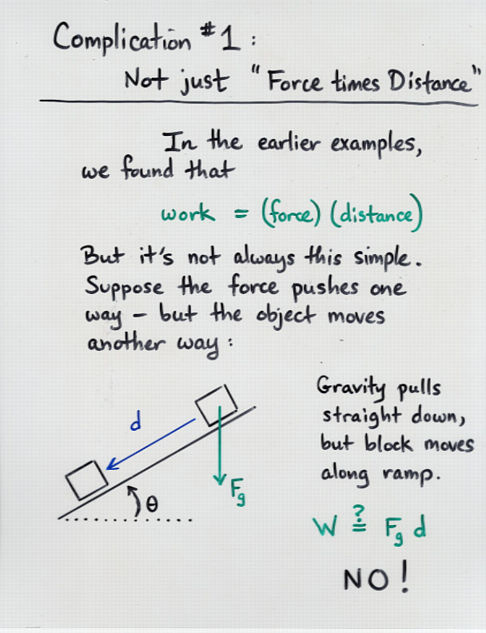 Complication #1:
Not just "Force times Distance"
In the earlier examples,
we found that
work = (force) (distance)
But it's not always this simple.
Suppose the force pushes one
way – but the object moves
another way:
Gravity pulls
straight down,
but block moves
along ramp.
d
Fg
θ
W ≟ Fg d
NO!